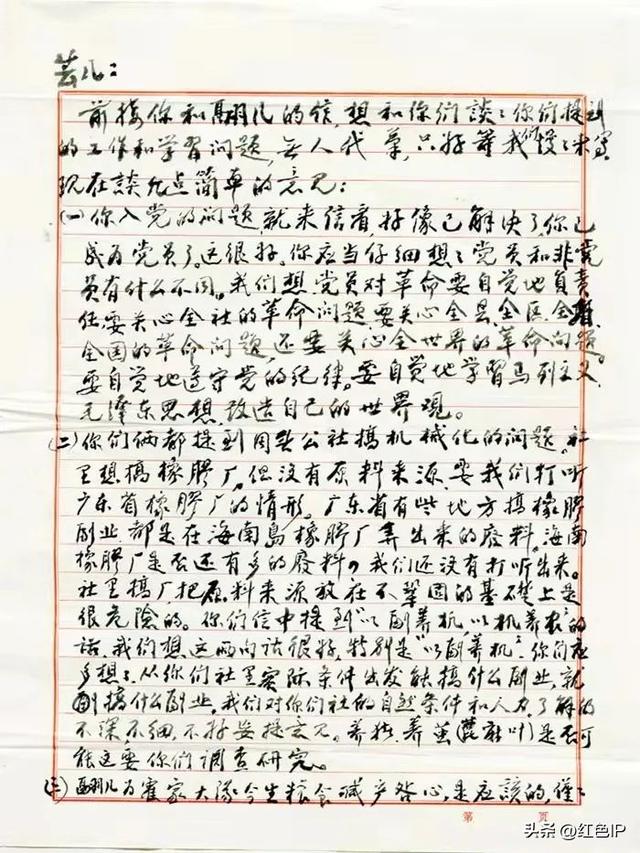 芸儿：
前接你和翮儿的信，想和你们談談你们提到
的工作和学習问題，无人代筆，只好等我们慢慢来写
现在談几点简单的意见：
(一)你入党的问題，就来信看，好像已解决了，你已
成为党员了。这很好。你应当仔细想想党员和非党
员有什么不同。我们想党员对革命要自觉地负责
任要关心全社的革命问題，要关心全县全区全省
全国的革命问題，还要关心全世界的革命问題。
要自觉地遵守党的纪律。要自觉地学習马列主义
毛澤东思想，改造自己的世界观。
(二)你们俩都提到公社搞机械化的问題。社
里想搞橡膠厂。但没有原料来源，要我们打听
广东省橡膠厂的情形。广东省有些地方搞橡膠
副业，都是在海南島橡膠厂弄出来的废料。海南
橡膠厂是否还有多的廢料，我们还没有打听出来。
社里搞厂把原料来源放在不鞏固的基礎上是
很危險的。你们信中提到“以副养机，以机养农”的
话，我们想这两句话很好，特别是“以副养机”。你们应
多想想，从你们社里实际条件出发能搞什么副业，就
搞什么副业。我们对你们社的自然条件和人力，了解的
不深不细，不好妄提意见。养蚕(蓖麻叶)是否可
能这要你们調查研究。
(三)翮儿为崔家大隊今生粮食减产咎心，是应該的，僅僅
第 页
头条 @红色IP